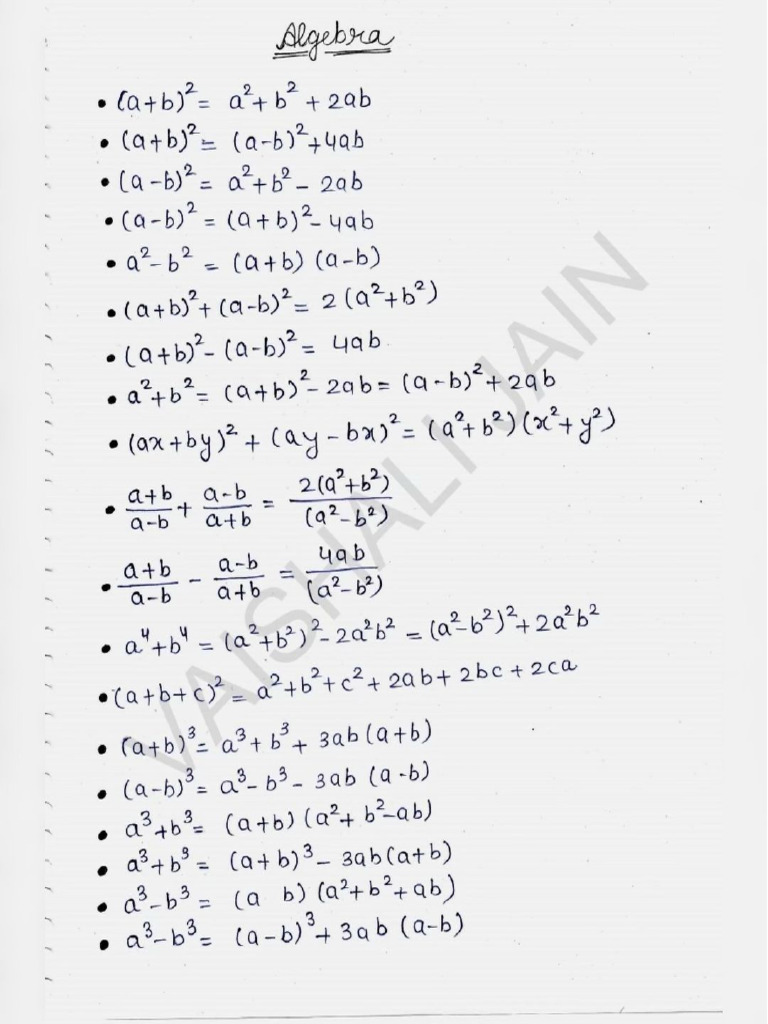 Algebra
• (a+b)² = a²+b²+2ab
• (a+b)² = (a-b)²+4ab
• (a-b)² = a²+b²-2ab
• (a-b)² = (a+b)²-4ab
• a²-b² = (a+b) (a-b)
• (a+b)²+(a-b)² = 2(a²+b²)
• (a+b)²-(a-b)² = 4ab
• a²+b² = (a+b)²-2ab = (a-b)²+2ab
• (ax+by)²+(ay-bx)² = (a²+b²)(x²+y²)
• (a+b)/(a-b) + (a-b)/(a+b) = 2(a²+b²)/(a²-b²)
• (a+b)/(a-b) - (a-b)/(a+b) = 4ab/(a²-b²)
• a⁴+b⁴ = (a²+b²)²-2a²b² = (a²-b²)²+2a²b²
• (a+b+c)² = a²+b²+c²+2ab+2bc+2ca
• (a+b)³ = a³+b³+3ab(a+b)
• (a-b)³ = a³-b³-3ab (a-b)
• a³+b³ = (a+b) (a²+b²-ab)
• a³+b³ = (a+b)³-3ab(a+b)
• a³-b³ = (a b) (a²+b²+ab)
• a³-b³ = (a-b)³+3ab (a-b)
VAISHALI JAIN